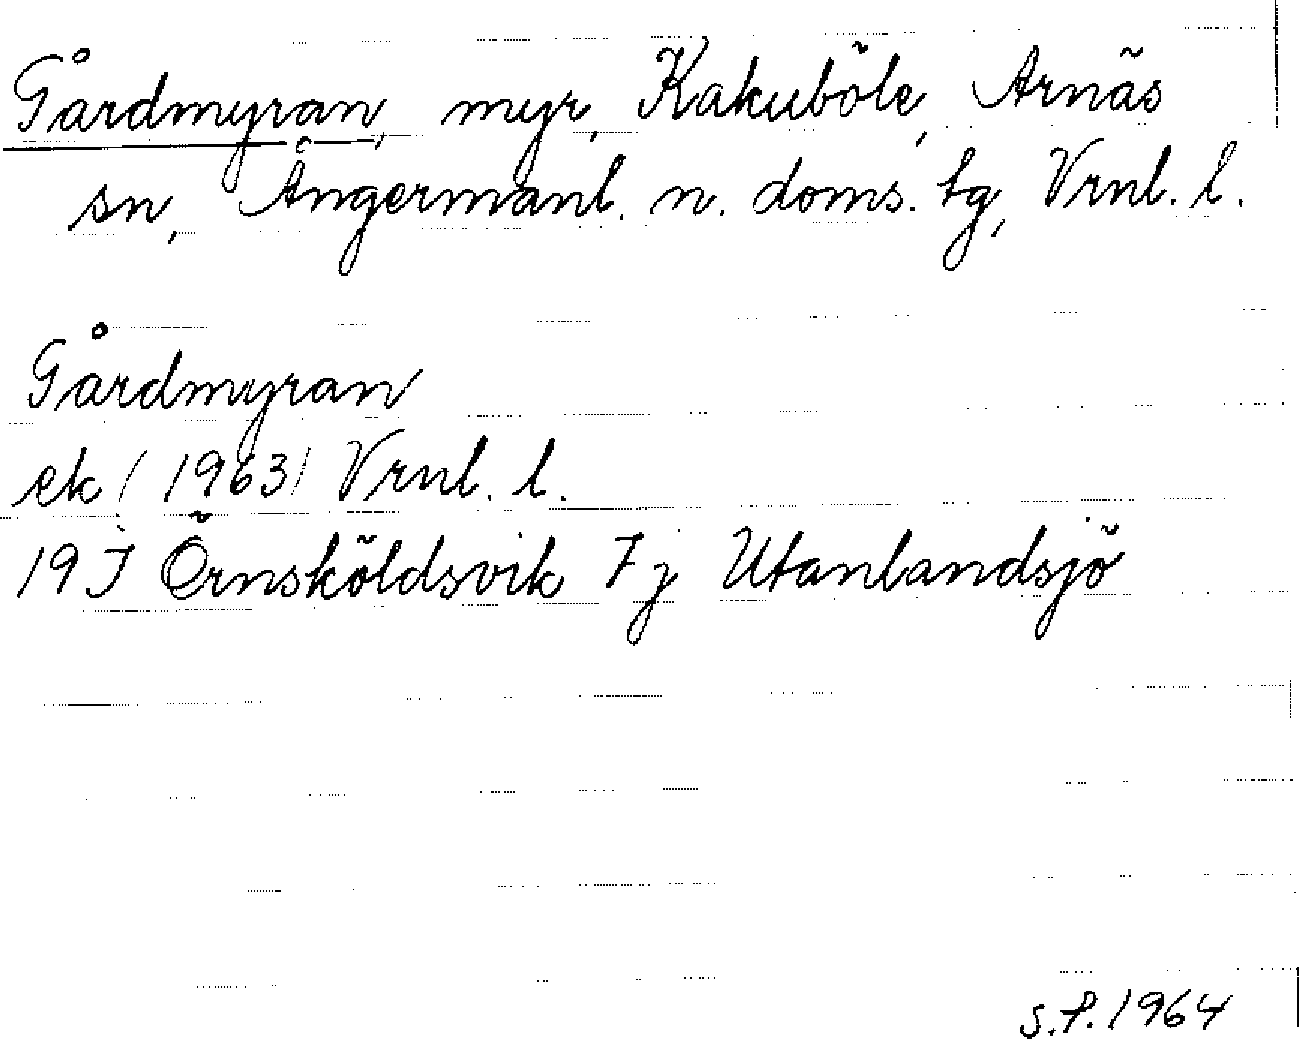 Gårdmyran, myr, Kakuböle, Arnäs
sn, Ångermanl. n. doms. tg, Vrnl. l.
Gårdmyran
ek (1963) Vrnl. l.
19 I Örnsköldsvik 7 j Utanlandsjö
S.P. 1964